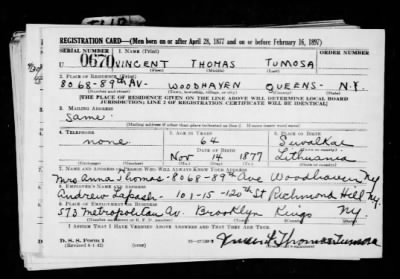 REGISTRATION CARD—(Men born on or after April 28, 1877 and on or before February 16, 1897)
SERIAL NUMBER 1. NAME (Print) ORDER NUMBER
U 0670 VINCENT THOMAS TUMOSA
(First) (Middle) (Last)
2. PLACE OF RESIDENCE (Print)
8068-89th AV. WOODHAVEN QUEENS N.Y.
(Number and street) (Town, township, village, or city) (County) (State)
[THE PLACE OF RESIDENCE GIVEN ON THE LINE ABOVE WILL DETERMINE LOCAL BOARD
JURISDICTION; LINE 2 OF REGISTRATION CERTIFICATE WILL BE IDENTICAL]
3. MAILING ADDRESS
Same
[Mailing address if other than place indicated on line 2. If same insert word same]
4. TELEPHONE 5. AGE IN YEARS 6. PLACE OF BIRTH
none 64 Suvalkai
DATE OF BIRTH
Nov 14 1877 Lithuania
(Exchange) (Number) (Mo.) (Day) (Yr.) (State or country)
7. NAME AND ADDRESS OF PERSON WHO WILL ALWAYS KNOW YOUR ADDRESS
Mrs Anna Thomas - 8068-89th Ave Woodhaven N.Y.
8. EMPLOYER'S NAME AND ADDRESS
Andrew - 101-15-120th St Richmond Hill N.Y.
9. PLACE OF EMPLOYMENT OR BUSINESS
573 Metropolitan Av. Brooklyn Kings N.Y.
(Number and street or R. F. D. number) (Town) (County) (State)
I AFFIRM THAT I HAVE VERIFIED ABOVE ANSWERS AND THAT THEY ARE TRUE.
D. S. S. Form 1
(Revised 4-1-42) Thomas Tumosa